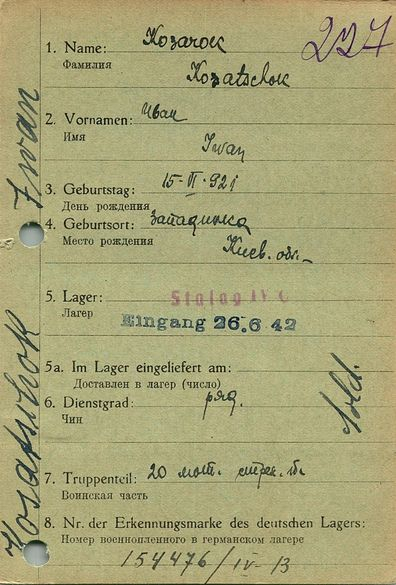 1. Name: Козачок 227
Фамилия
Kozatschok
2. Vornamen: Иван
Имя
Iwan
3. Geburtstag: 15-II-921
День рождения
4. Geburtsort: Западинка
Место рождения
Киев. обл.
5. Lager: Stalag IV C
Лагер
Eingang 26.6 42
5a. Im Lager eingeliefert am:
Доставлен в лагер (число)
6. Dienstgrad: ряд. Sold.
Чин
7. Truppenteil: 20 мот. стрел. б.
Воинская часть
8. Nr. der Erkennungsmarke des deutschen Lagers:
Номер военнопленного в германском лагере
154476/IV-B
Kosatschok Iwan